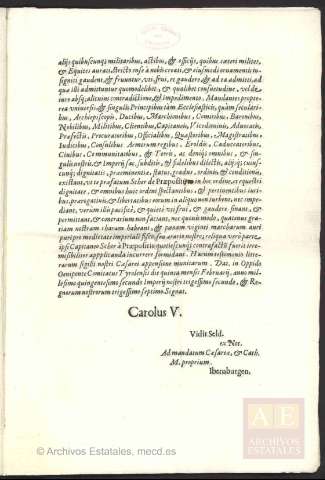 alijs quibuscunq; militaribus, actibus, & officijs, quibus cæteri milites,
& Equites aurati, stricto ense à nobis creati, & eiusmodi ornamentis in-
signiti gaudent, & fruuntur, vesci, frui, & gaudere, & ad ea admitti, ad
quæ illi admittuntur quomodolibet, & qualibet consuetudine, vel de
iure absq; alicuius contradictione, & impedimento. Mandantes propte-
rea vniuersis, & singulis Principibus tam Ecclesiasticis, quàm seculari-
bus, Archiepiscopis, Ducibus, Marchionibus, Comitibus, Baronibus,
Nobilibus, Militibus, Clientibus, Capitaneis, Vicedominis, Aduocatis,
Præfectis, Procuratoribus, Officialibus, Quæstoribus, Magistratibus,
Iudicibus, Consulibus, Armorum regibus, Eroldis, Caduceatoribus,
Ciuibus, Communitatibus, & Tertis, ac denique omnibus, & sin-
gulis nostris, & Imperij sac. subditis, & fidelibus dilectis, alijs, cuius-
cunq; dignitatis, præeminentiæ, status, gradus, ordinis, & conditionis,
existant, vt te præfatum Schor de Præpositijs in hoc ordine, et equestri
dignitate, & omnibus huic ordini spectantibus, & pertinentibus iuri-
bus, prærogatiuis, & libertatibus eorum in aliquo non turbent, nec impe-
diant, verùm illis pacificè, & quietè vti, frui, & gaudere sinant, &
permittant, & contrarium non faciant, nec quouis modo, quatenus gra-
tiam nostram charam habeant, & pœnam viginti marcharum auri
puri pro medietate imperiali fisco, seu ærario nostro; reliqua verò parte
ipsi Capitaneo Schor à Præpositijs, quoties cunq; contrafactũ fuerit irre-
missibiliter applicanda incurrere formidant. Harum testimonio litte-
rarum sigilli nostri Cæsarei appensione munitarum. Dat. in Oppido
Oenipente Comitatus Tyrolensis die quinta mensis Februarij, anno mil-
lesimo quingentesimo secundo Imperij nostri trigesimo secundo, & Re-
gnorum nostrorum trigesimo septimo Signat.
Carolus V.
Vidit Seld.
ex Net.
Ad mandatum Cæsareæ, & Cath.
M. proprium.
Ibernburgen.
AE
ARCHIVOS
ESTATALES
© Archivos Estatales, mecd.es